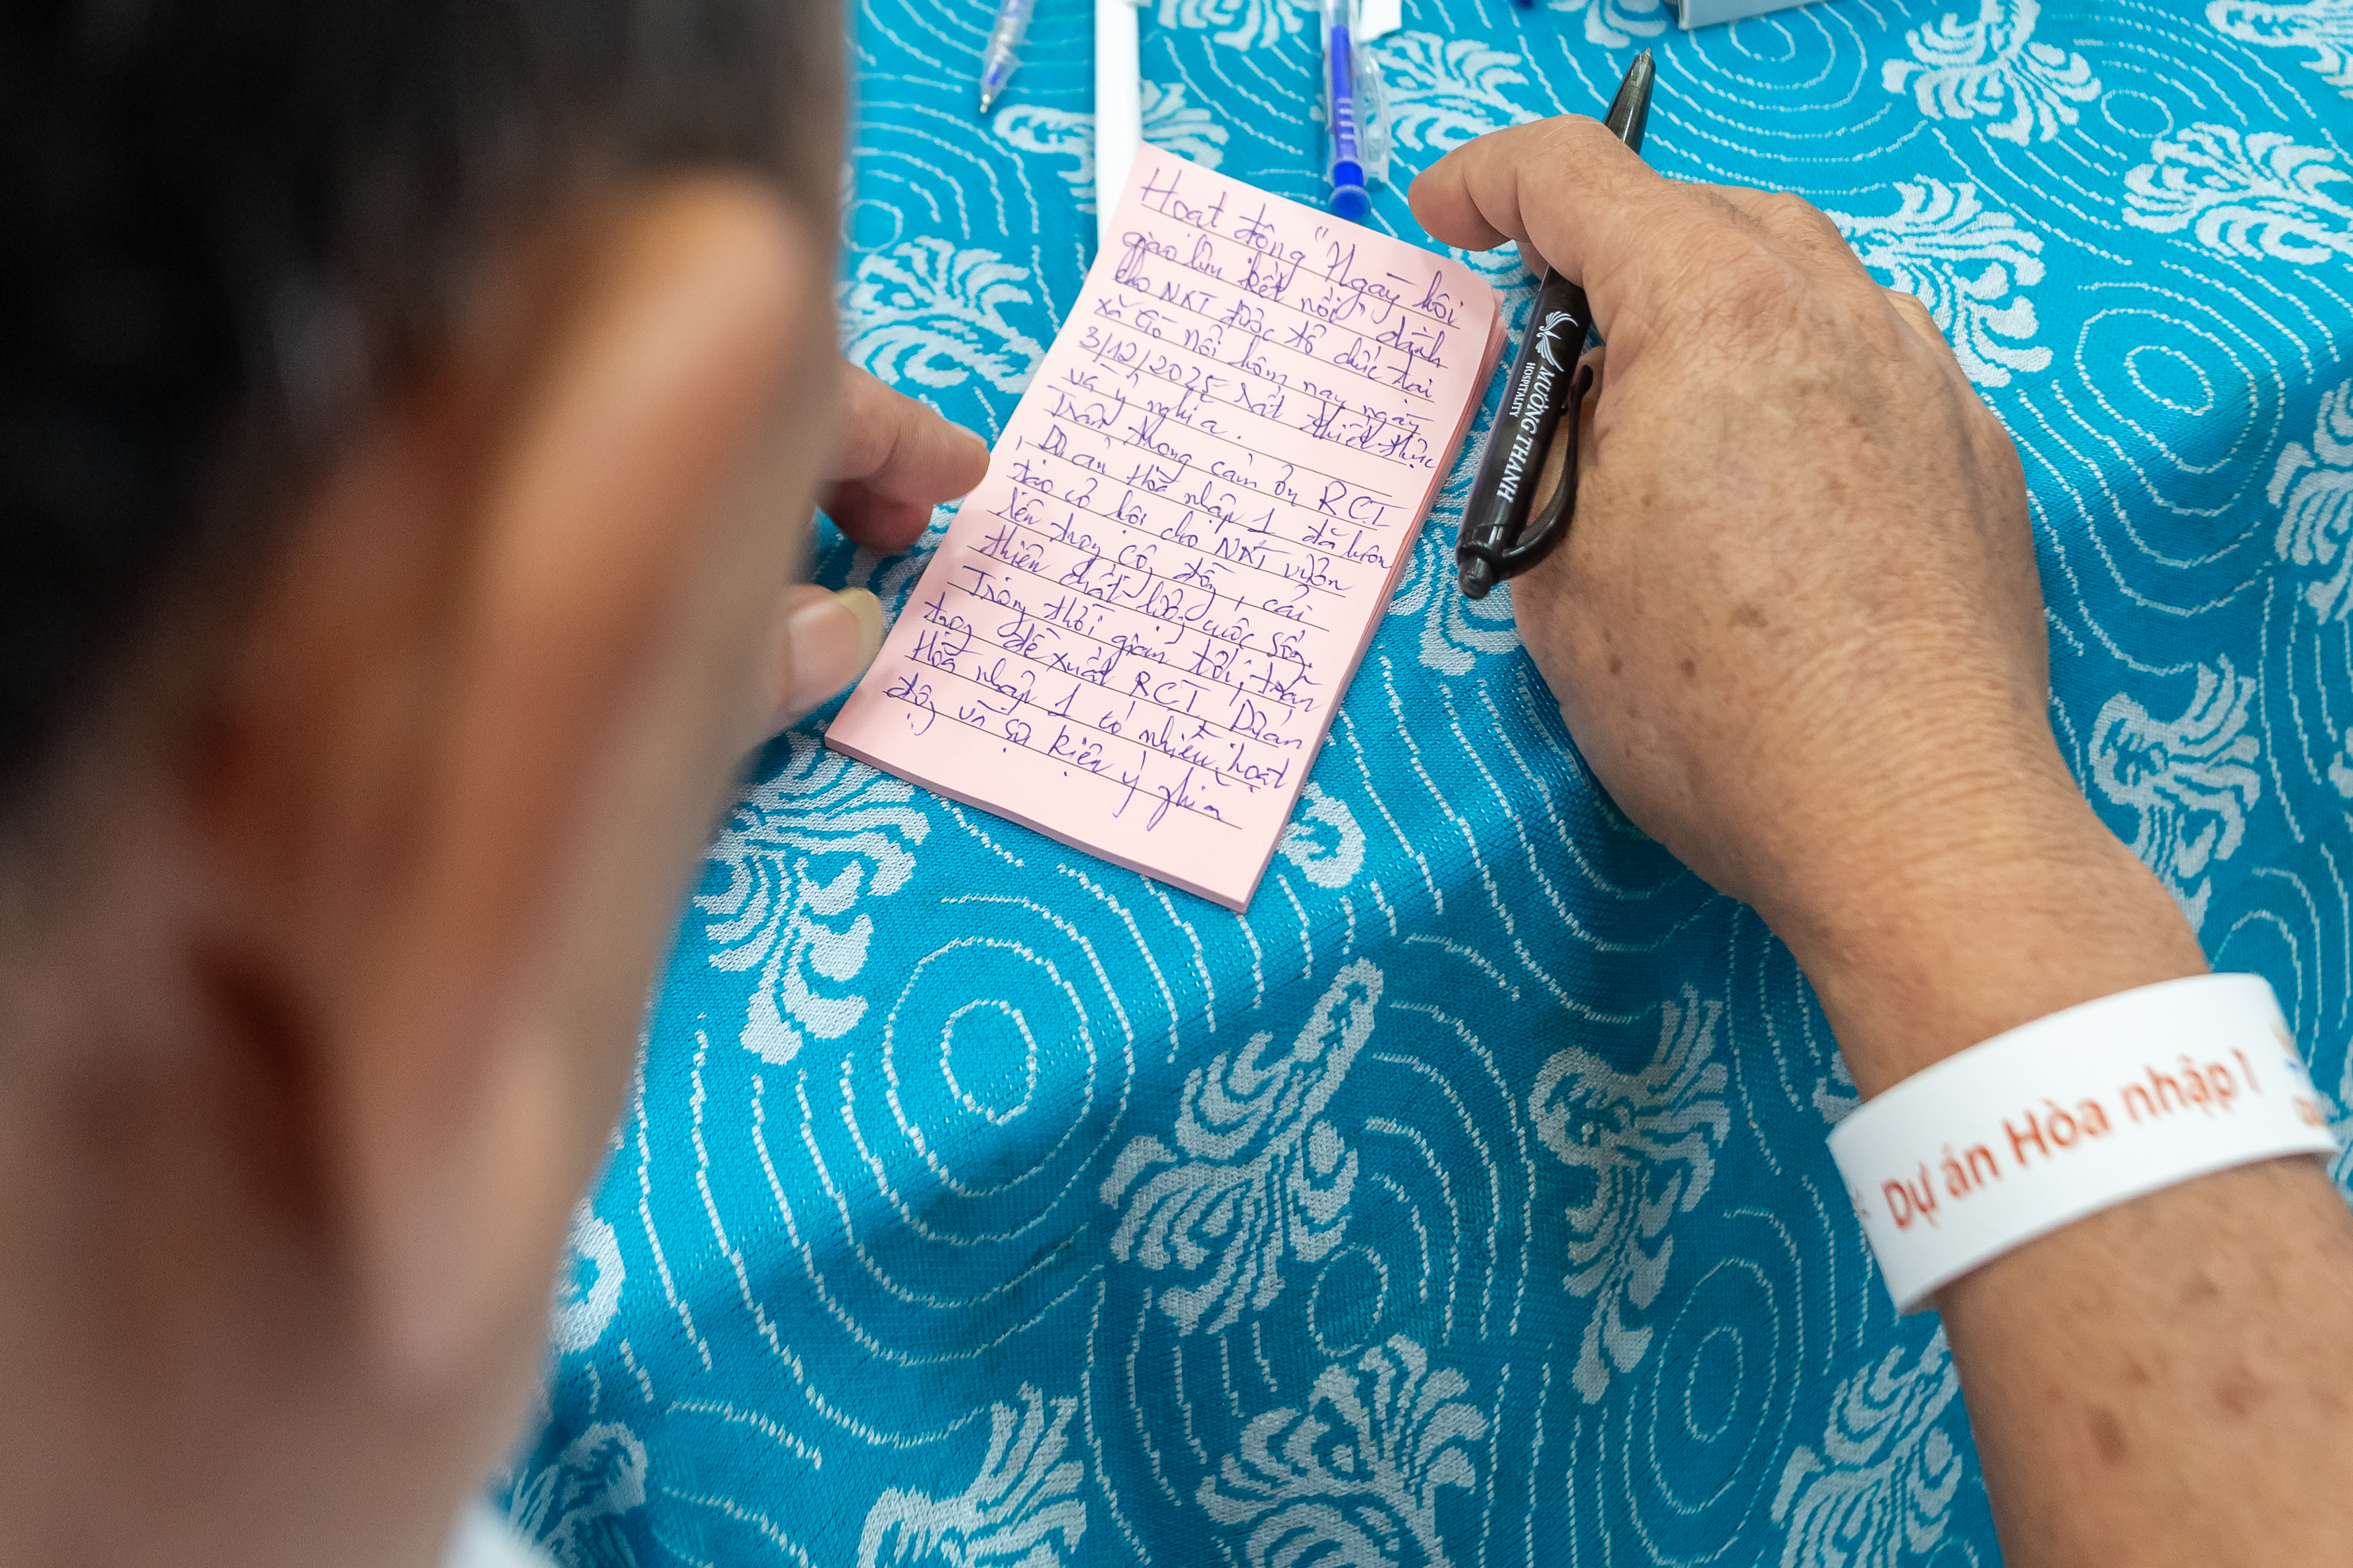 Hoạt động "Ngày hội
giao lưu kết nối" dành
cho NKT được tổ chức tại
xã Gò nổi hôm nay ngày
3/12/2025 rất thiết thực
và ý nghĩa.
Trân trọng cảm ơn RCI
, Dự án Hòa nhập 1 đã luôn
tạo cơ hội cho NKT vươn
lên trong cộng đồng, cải
thiện chất lượng cuộc sống.
Trong thời gian tới, trân
trọng đề xuất RCI, Dự án
Hòa nhập 1 có nhiều hoạt
động và sự kiện ý nghĩa
MƯỜNG THANH
HOSPITALITY
Dự án Hòa nhập 1